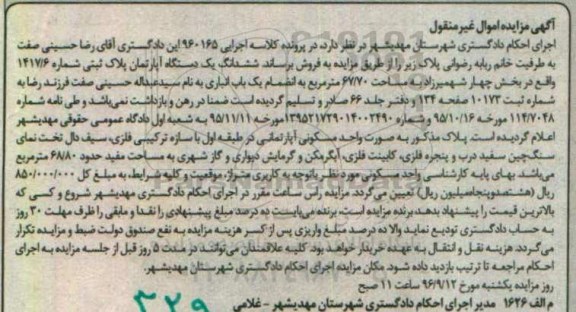 آگهی مزایده اموال غیرمنقول
اجرای احکام دادگستری شهرستان مهدیشهر در نظر دارد، در پرونده کلاسه اجرایی ۹۶۰۱۶۵ این دادگستری آقای رضا حسینی صفت
به طرفیت خانم ربابه رضوانی پلاک زیر را از طریق مزایده به فروش برساند. ششدانگ یک دستگاه آپارتمان پلاک ثبتی شماره ۱۴۱۷/۶
واقع در بخش چهار شهمیرزاد به مساحت ۶۷/۷۰ مترمربع به انضمام یک باب انباری به نام سیدعبداله حسینی صفت فرزند رضا به
شماره ثبت ۱۰۱۷۳ صفحه ۱۳۴ و دفتر جلد ۶۶ صادر و تسلیم گردیده است ضمنا در رهن و بازداشت نمی‌باشد و طی نامه شماره
۱۱۴/۷۰۴۸ مورخه ۹۵/۱۰/۱۶ و شماره ۱۳۹۵۲۱۷۲۹۰۱۴۰۰۲۴۹۰ مورخه ۹۵/۱۱/۱۱ به شعبه اول دادگاه عمومی حقوقی مهدیشهر
اعلام گردیده است. پلاک مذکور به صورت واحد مسکونی آپارتمانی در طبقه اول با سازه ترکیبی فلزی، سیف دال تخت نمای
سنگ‌چین سفید درب و پنجره فلزی، کابینت فلزی، آبگرمکن و گرمایش دیواری و گاز شهری به مساحت مفید حدود ۶۸/۸۰ مترمربع
می‌باشد. بهای پایه کارشناسی واحد مسکونی مورد نظر باتوجه به کاربری متراژ، موقعیت و کلیه شرایط، به مبلغ کل ۸۵۰/۰۰۰/۰۰۰
ریال (هشتصدوپنجاه‌میلیون ریال) تعیین می‌گردد. مزایده راس ساعت مقرر در اجرای احکام دادگستری مهدیشهر شروع و کسی که
بالاترین قیمت را پیشنهاد بدهد، برنده مزایده است. برنده می‌بایست ده درصد مبلغ پیشنهادی را نقدا و مابقی را ظرف مهلت ۳۰ روز
به حساب دادگستری تودیع نماید والا ده درصد مبلغ واریزی پس از کسر هزینه مزایده به نفع صندوق دولت ضبط و مزایده تکرار
می‌گردد. هزینه نقل و انتقال به عهده خریدار خواهد بود. کلیه علاقمندان می‌توانند در مدت ۵ روز قبل از جلسه مزایده به اجرای
احکام مراجعه تا ترتیب بازدید داده شود. مکان مزایده اجرای احکام دادگستری شهرستان مهدیشهر.
روز مزایده یکشنبه مورخ ۹۶/۹/۱۲ ساعت ۱۱ صبح
م الف ۱۶۲۶ مدیر اجرای احکام دادگستری شهرستان مهدیشهر - غلامی
۳۲۹